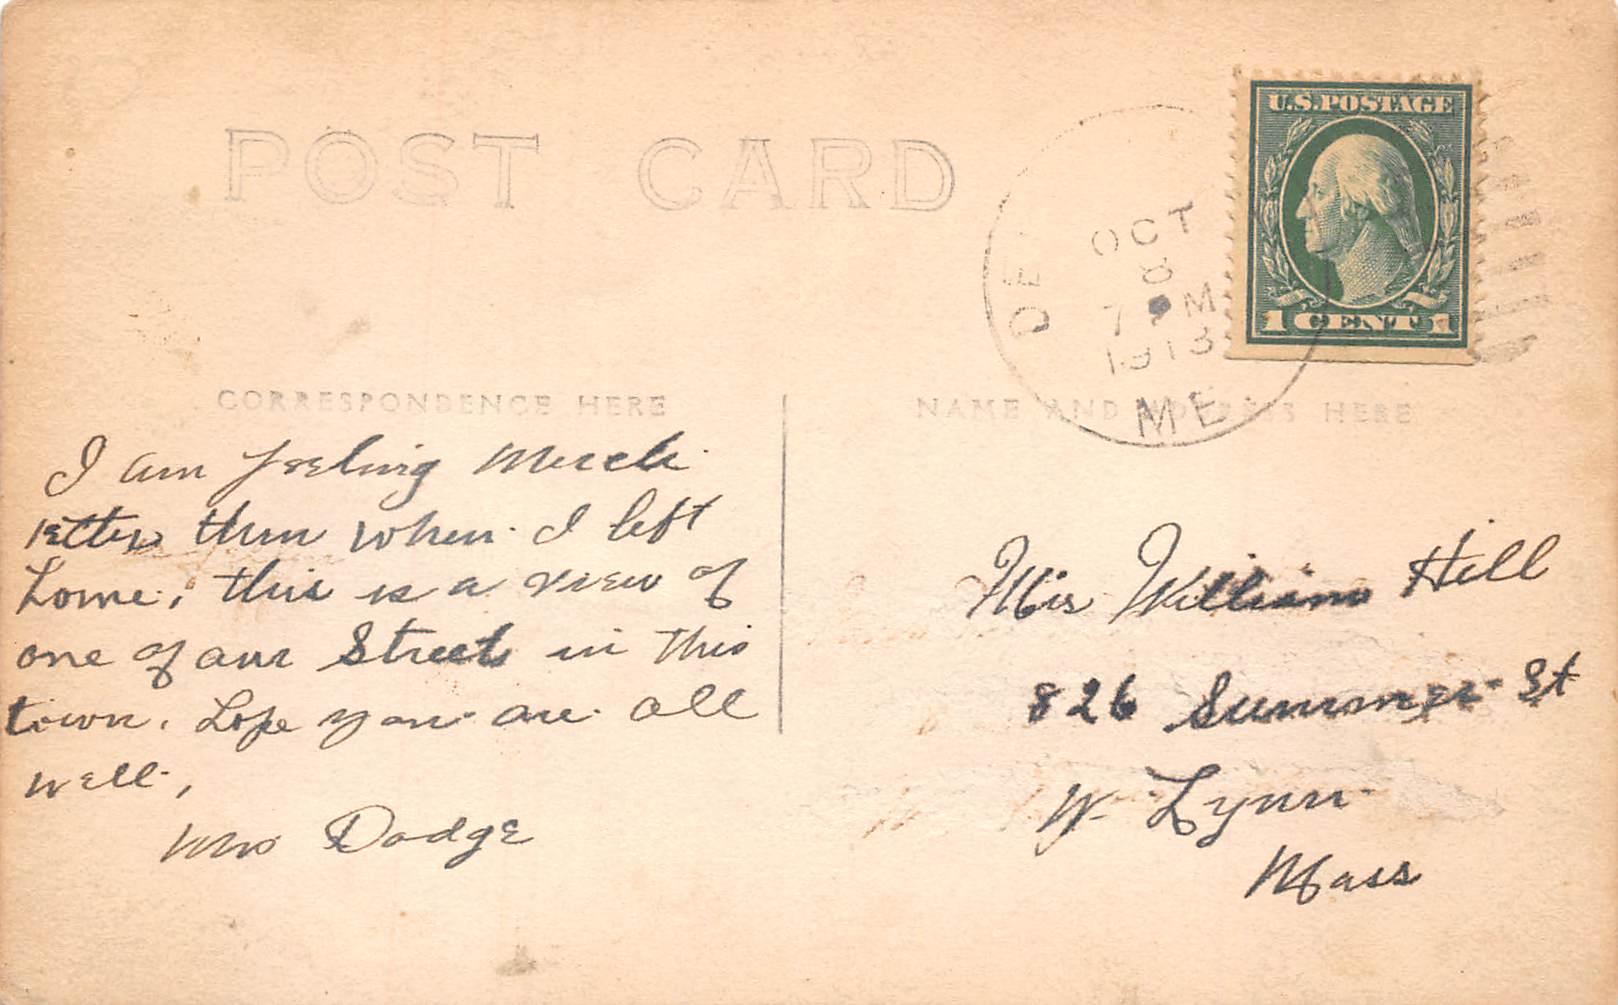 POST CARD
U.S. POSTAGE
1 CENT 1
OCT
8
7 PM
1913
ME
CORRESPONDENCE HERE
NAME AND ADDRESS HERE
I am feeling Much
better then when I left
home, this is a view of
one of our Streets in this
town. Hope you are all
well,
Mrs Dodge
Mrs William Hill
826 Summer St
W. Lynn
Mass